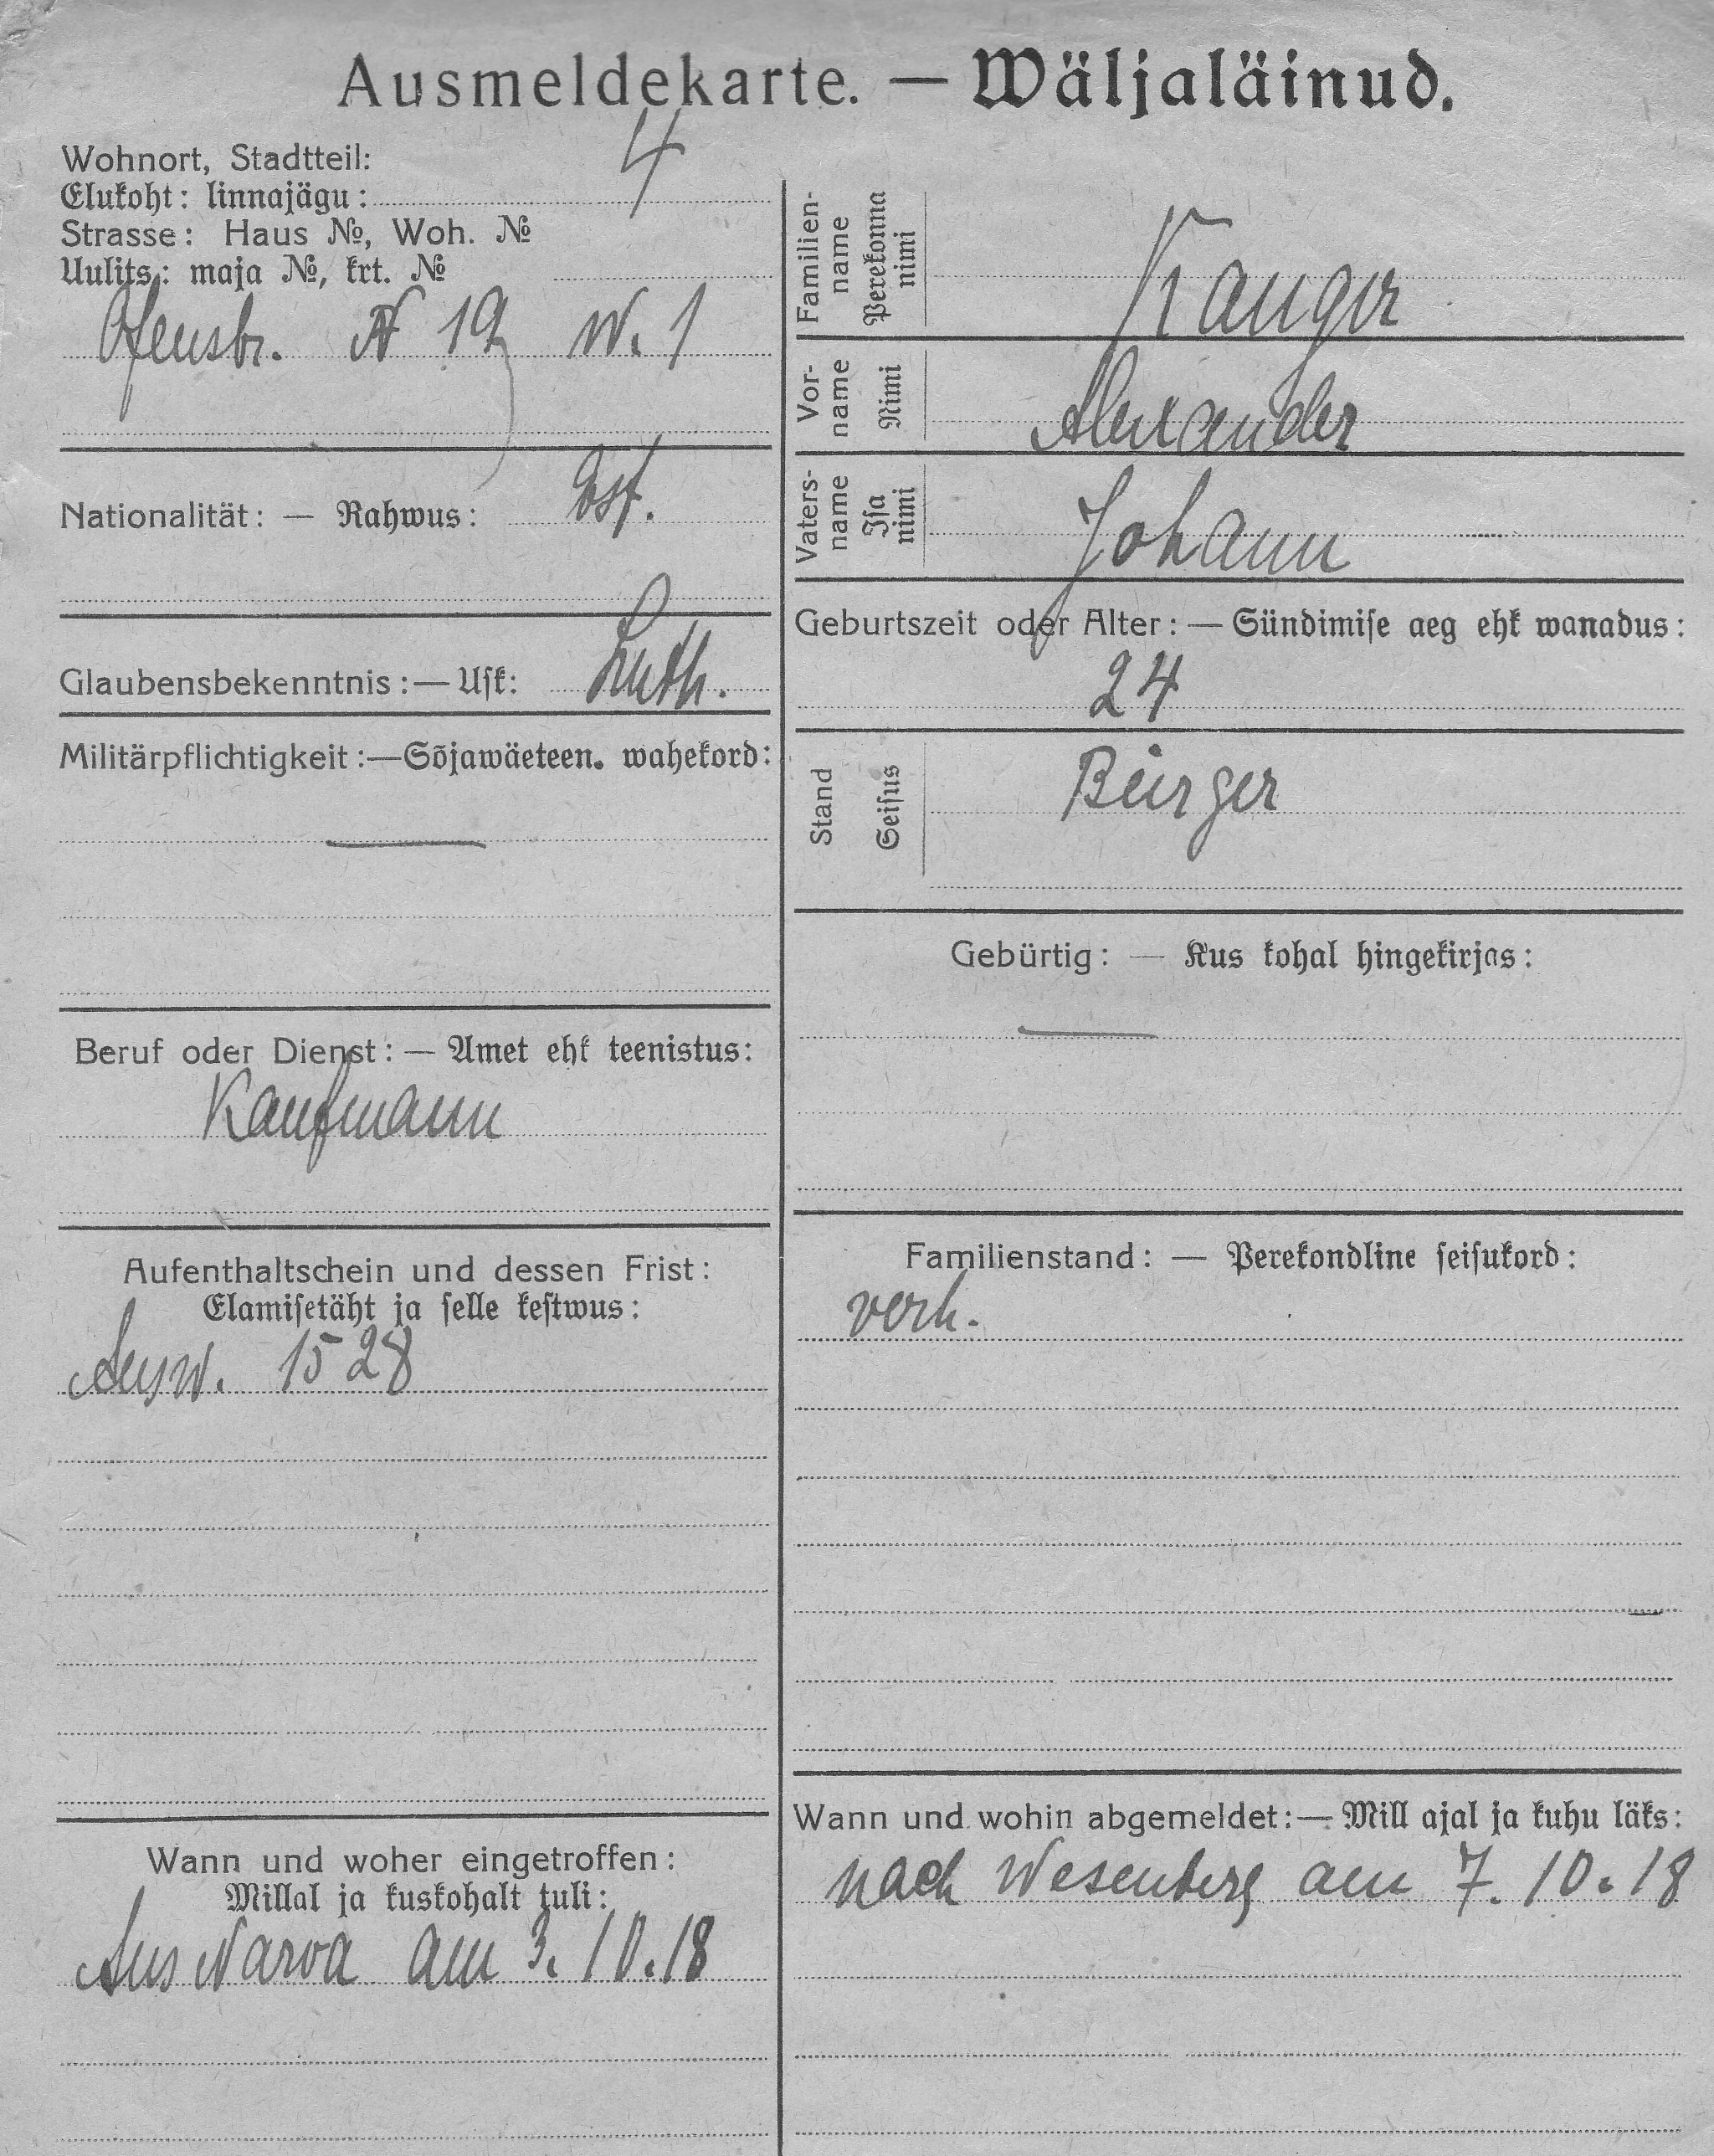 Ausmeldekarte. — Wäljaläinud.
Wohnort, Stadtteil:
Elukoht: linnajägu: 4
Strasse: Haus №, Woh. №
Uulits: maja №, krt. №
N 19 W. 1
Nationalität: — Rahwus: Est.
Glaubensbekenntnis: — Usk: Luth.
Militärpflichtigkeit: — Sõjawäeteen. wahekord:
—
Beruf oder Dienst: — Amet ehk teenistus:
Kaufmann
Aufenthaltschein und dessen Frist:
Elamisetäht ja selle kestwus:
Ausw. 1528
Wann und woher eingetroffen:
Millal ja kuskohalt tuli:
Aus Narva am 3. 10. 18
Familien-
name
Perekonna
nimi
Kanger
Vor-
name
Nimi
Alexander
Vaters-
name
Isa
nimi
Johann
Geburtszeit oder Alter: — Sündimise aeg ehk wanadus:
24
Stand
Seisus
Bürger
Gebürtig: — Kus kohal hingekirjas:
—
Familienstand: — Perekondline seisukord:
verh.
Wann und wohin abgemeldet: — Mill ajal ja kuhu läks:
nach Wesenberg am 7. 10. 18